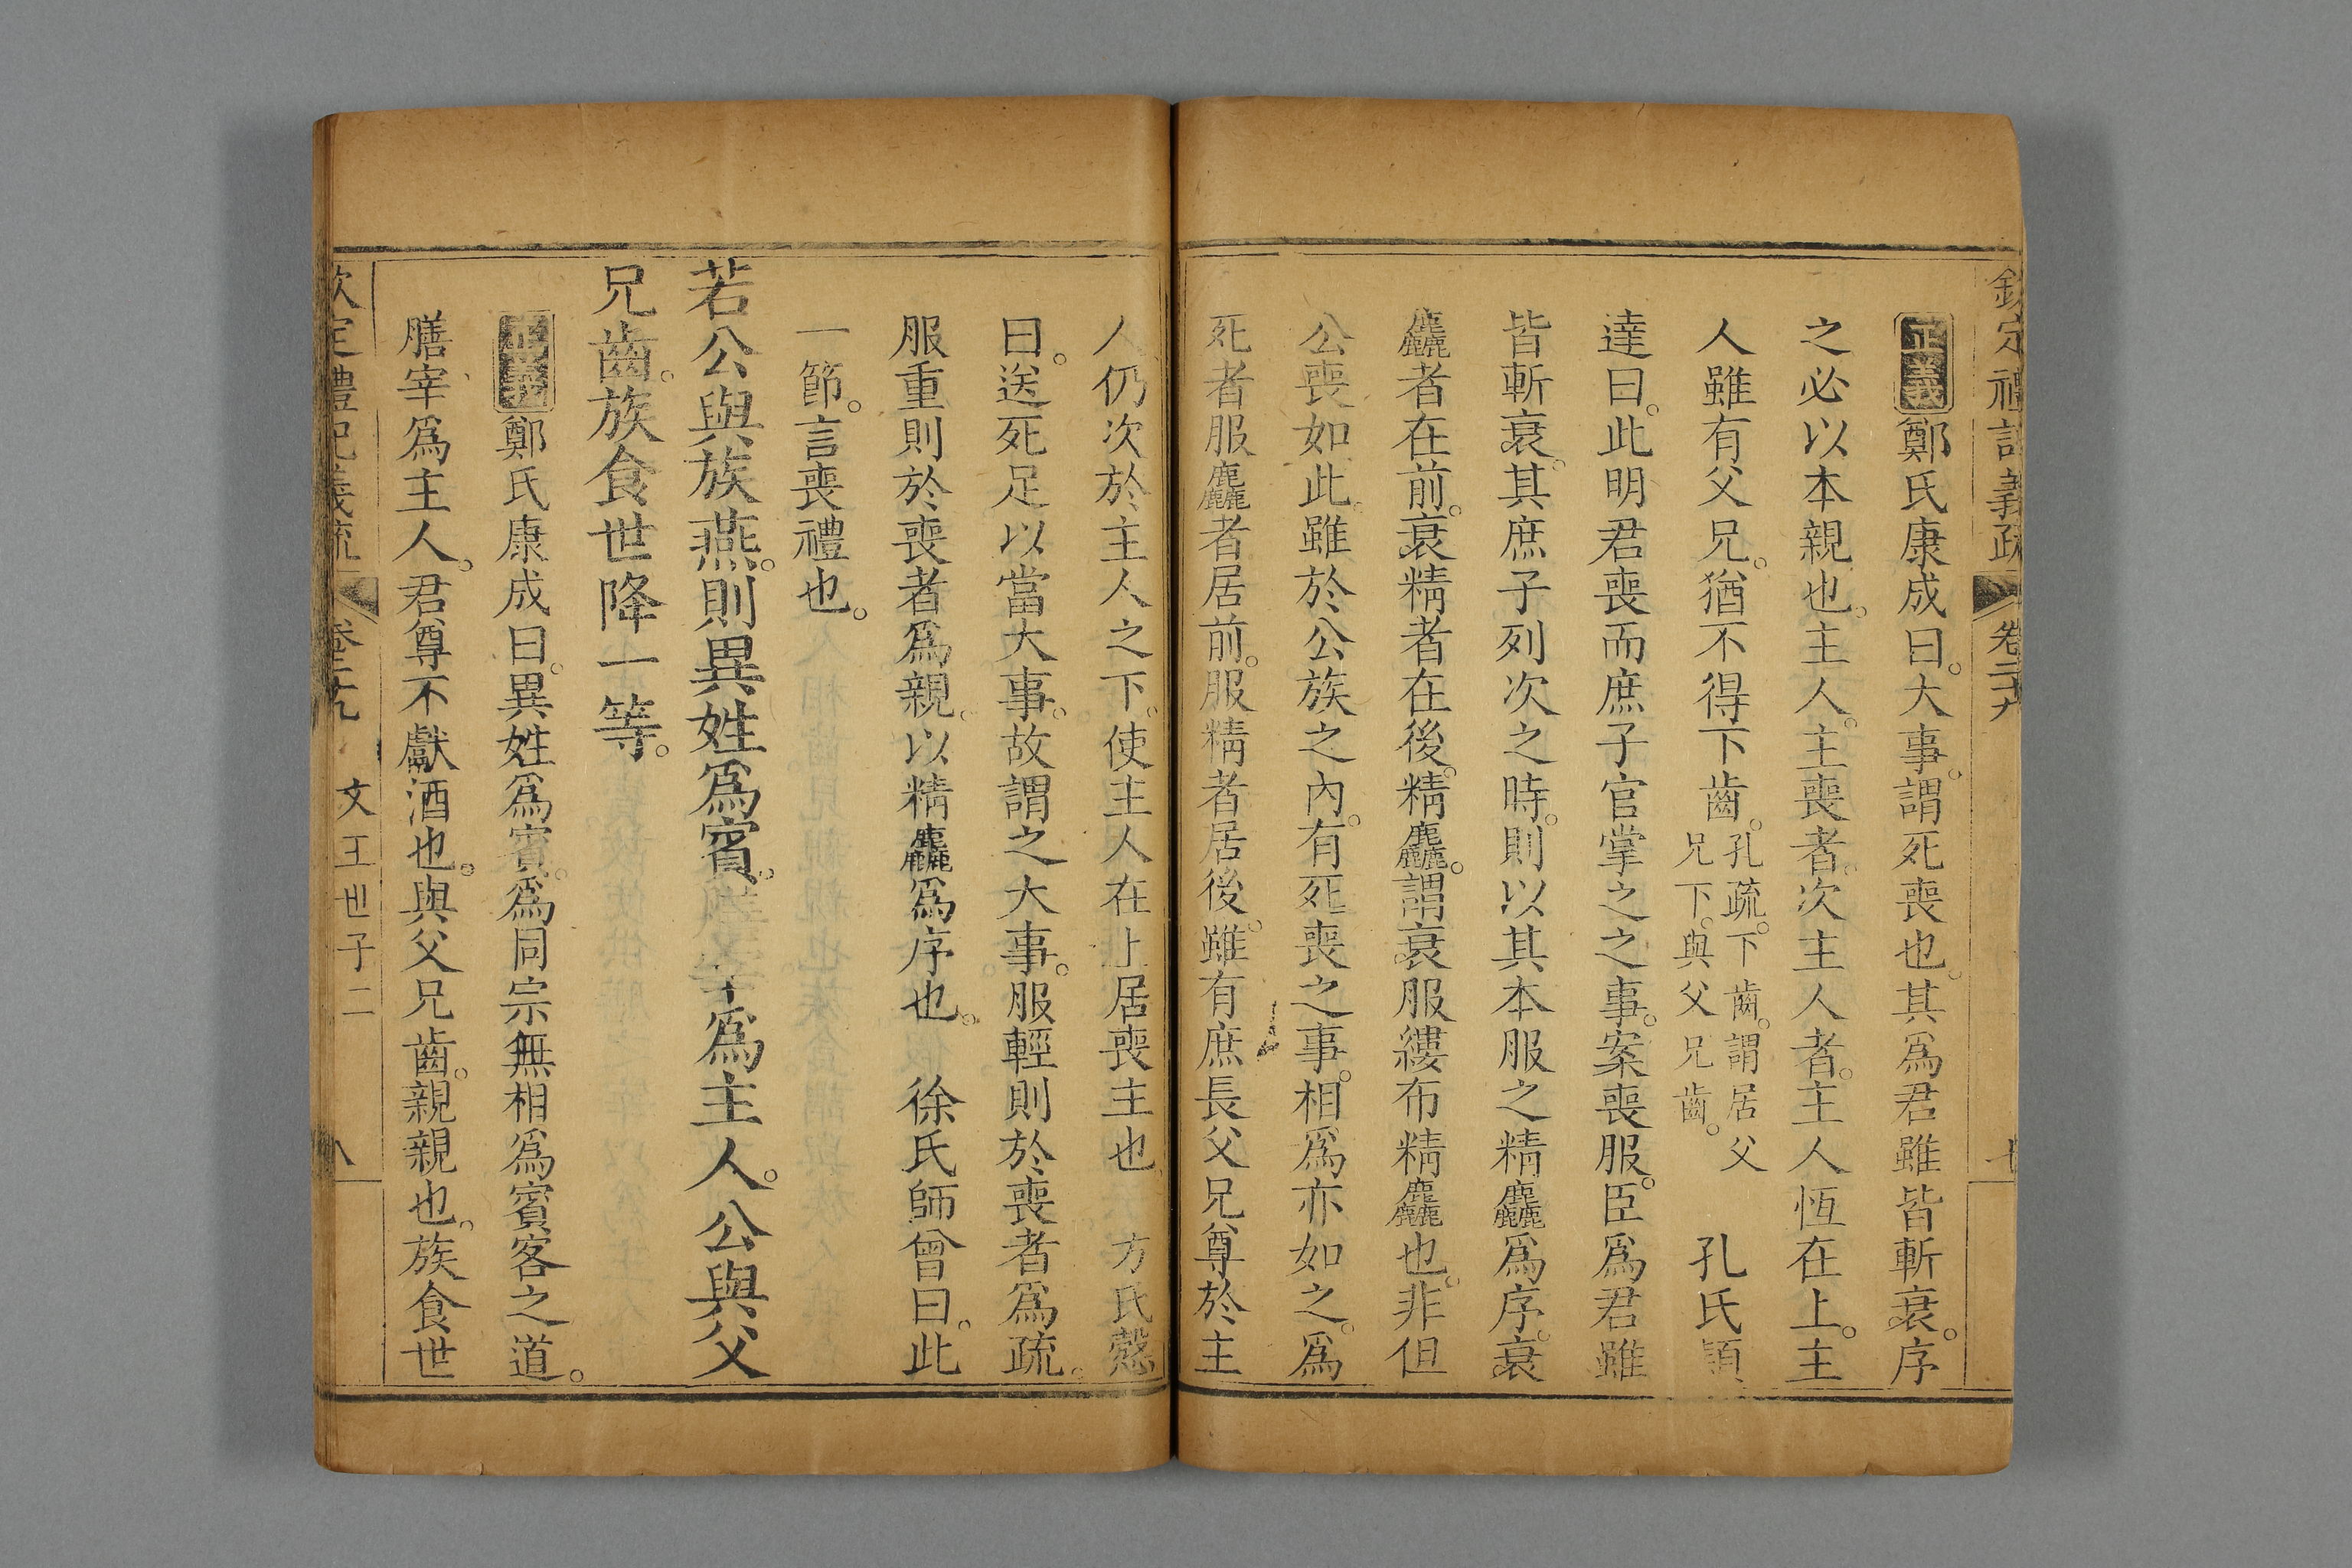 欽定禮記義疏 卷二十九
正義鄭氏康成曰。大事。謂死喪也。其爲君雖皆斬衰。序
之必以本親也。主人。主喪者。次主人者。主人恆在上。主
人雖有父兄。猶不得下齒。孔疏。下齒。謂居父兄下。與父兄齒。 孔氏穎
達曰。此明君喪而庶子官掌之之事。案喪服。臣爲君雖
皆斬衰。其庶子列次之時。則以其本服之精麤爲序。衰
麤者在前。衰精者在後。精麤。謂衰服縷布精麤也。非但
公喪如此。雖於公族之內。有死喪之事。相爲亦如之。爲
死者服麤者居前。服精者居後。雖有庶長父兄尊於主
人仍次於主人之下。使主人在上居喪主也 方氏慤
曰。送死足以當大事。故謂之大事。服輕則於喪者爲疏。
服重則於喪者爲親。以精麤爲序也。 徐氏師曾曰。此
一節。言喪禮也。
若公與族燕。則異姓爲賓。膳宰爲主人。公與父
兄齒。族食世降一等。
正義鄭氏康成曰。異姓爲賓。爲同宗無相爲賓客之道。
膳宰爲主人。君尊不獻酒也。與父兄齒。親親也。族食世
欽定禮記義疏 卷二十九 文王世子二 八